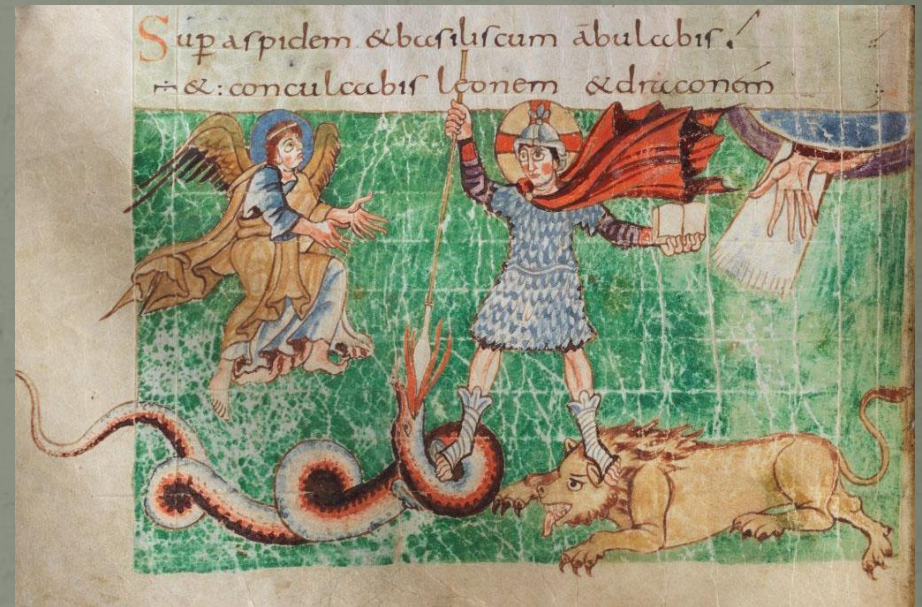 Sup aspidem & basiliscum ābulabis.
÷ &: conculcabis leonem & draconem